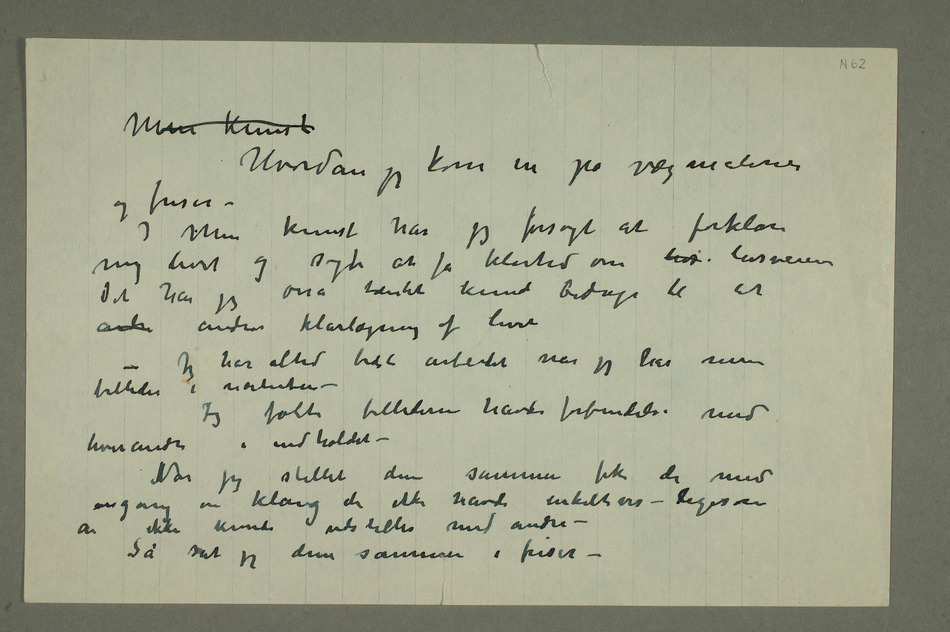 N 62
Min kunst
Hvordan jeg kom in på vægmalerier
og friser –
I Min kunst har jeg forsøgt at forklare
mig livet og søgt at få klarhed om livsveien
Det har jeg også tænkt kunne bidrage til at
andre andres klarlægning af livet
– Jeg har altid bedst arbeidet når jeg har mine
billeder i nærheten –
Jeg følte billederne havde forbindelse med
hverandre i indholdet –
Når jeg stillet dem sammen fik de med
engang en klang de ikke havde enkeltvis – ligesom
de ikke kunde udstilles med andre –
Så sat jeg dem sammen i friser –